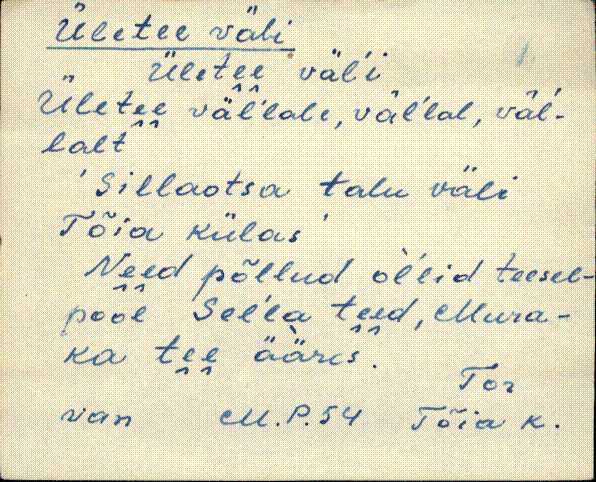 Ületee väli
Ületee väl'i
Ületee väl'lale, väl'lal, väl'-
lalt
'Sillaotsa talu väli
Tõia külas'
Need põllud òl'l'id teesel-
pool Sel'l'a teed, Mura-
ka tee ääres.
Tor
van M.P.54 Tõia k.